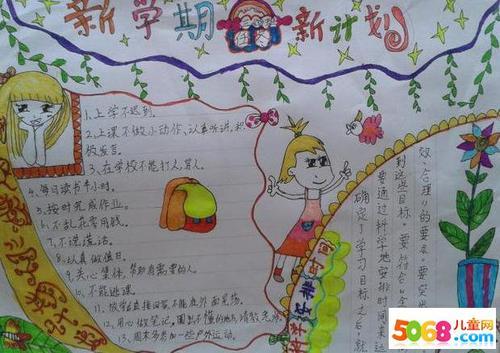 新学期
新计划
1、上学不迟到。
2、上课不做小动作、认真听讲、积
极发言。
3、在学校不能打人、骂人。
4、每日读书半小时。
5、按时完成作业。
6、不乱花零用钱。
7、不说谎话。
8、认真做值日。
9、关心集体、帮助有需要的人。
10、不能逃课。
11、放学直接回家、不能在外面
12、用心做笔记、
13、周末多参加一些户外运动。
科学安排时间
确定了学习目标之后，就
要通过科学地安排时间来达
到这些目标。要符合“全
效、合理”的要
5068儿童网
www.5068.com